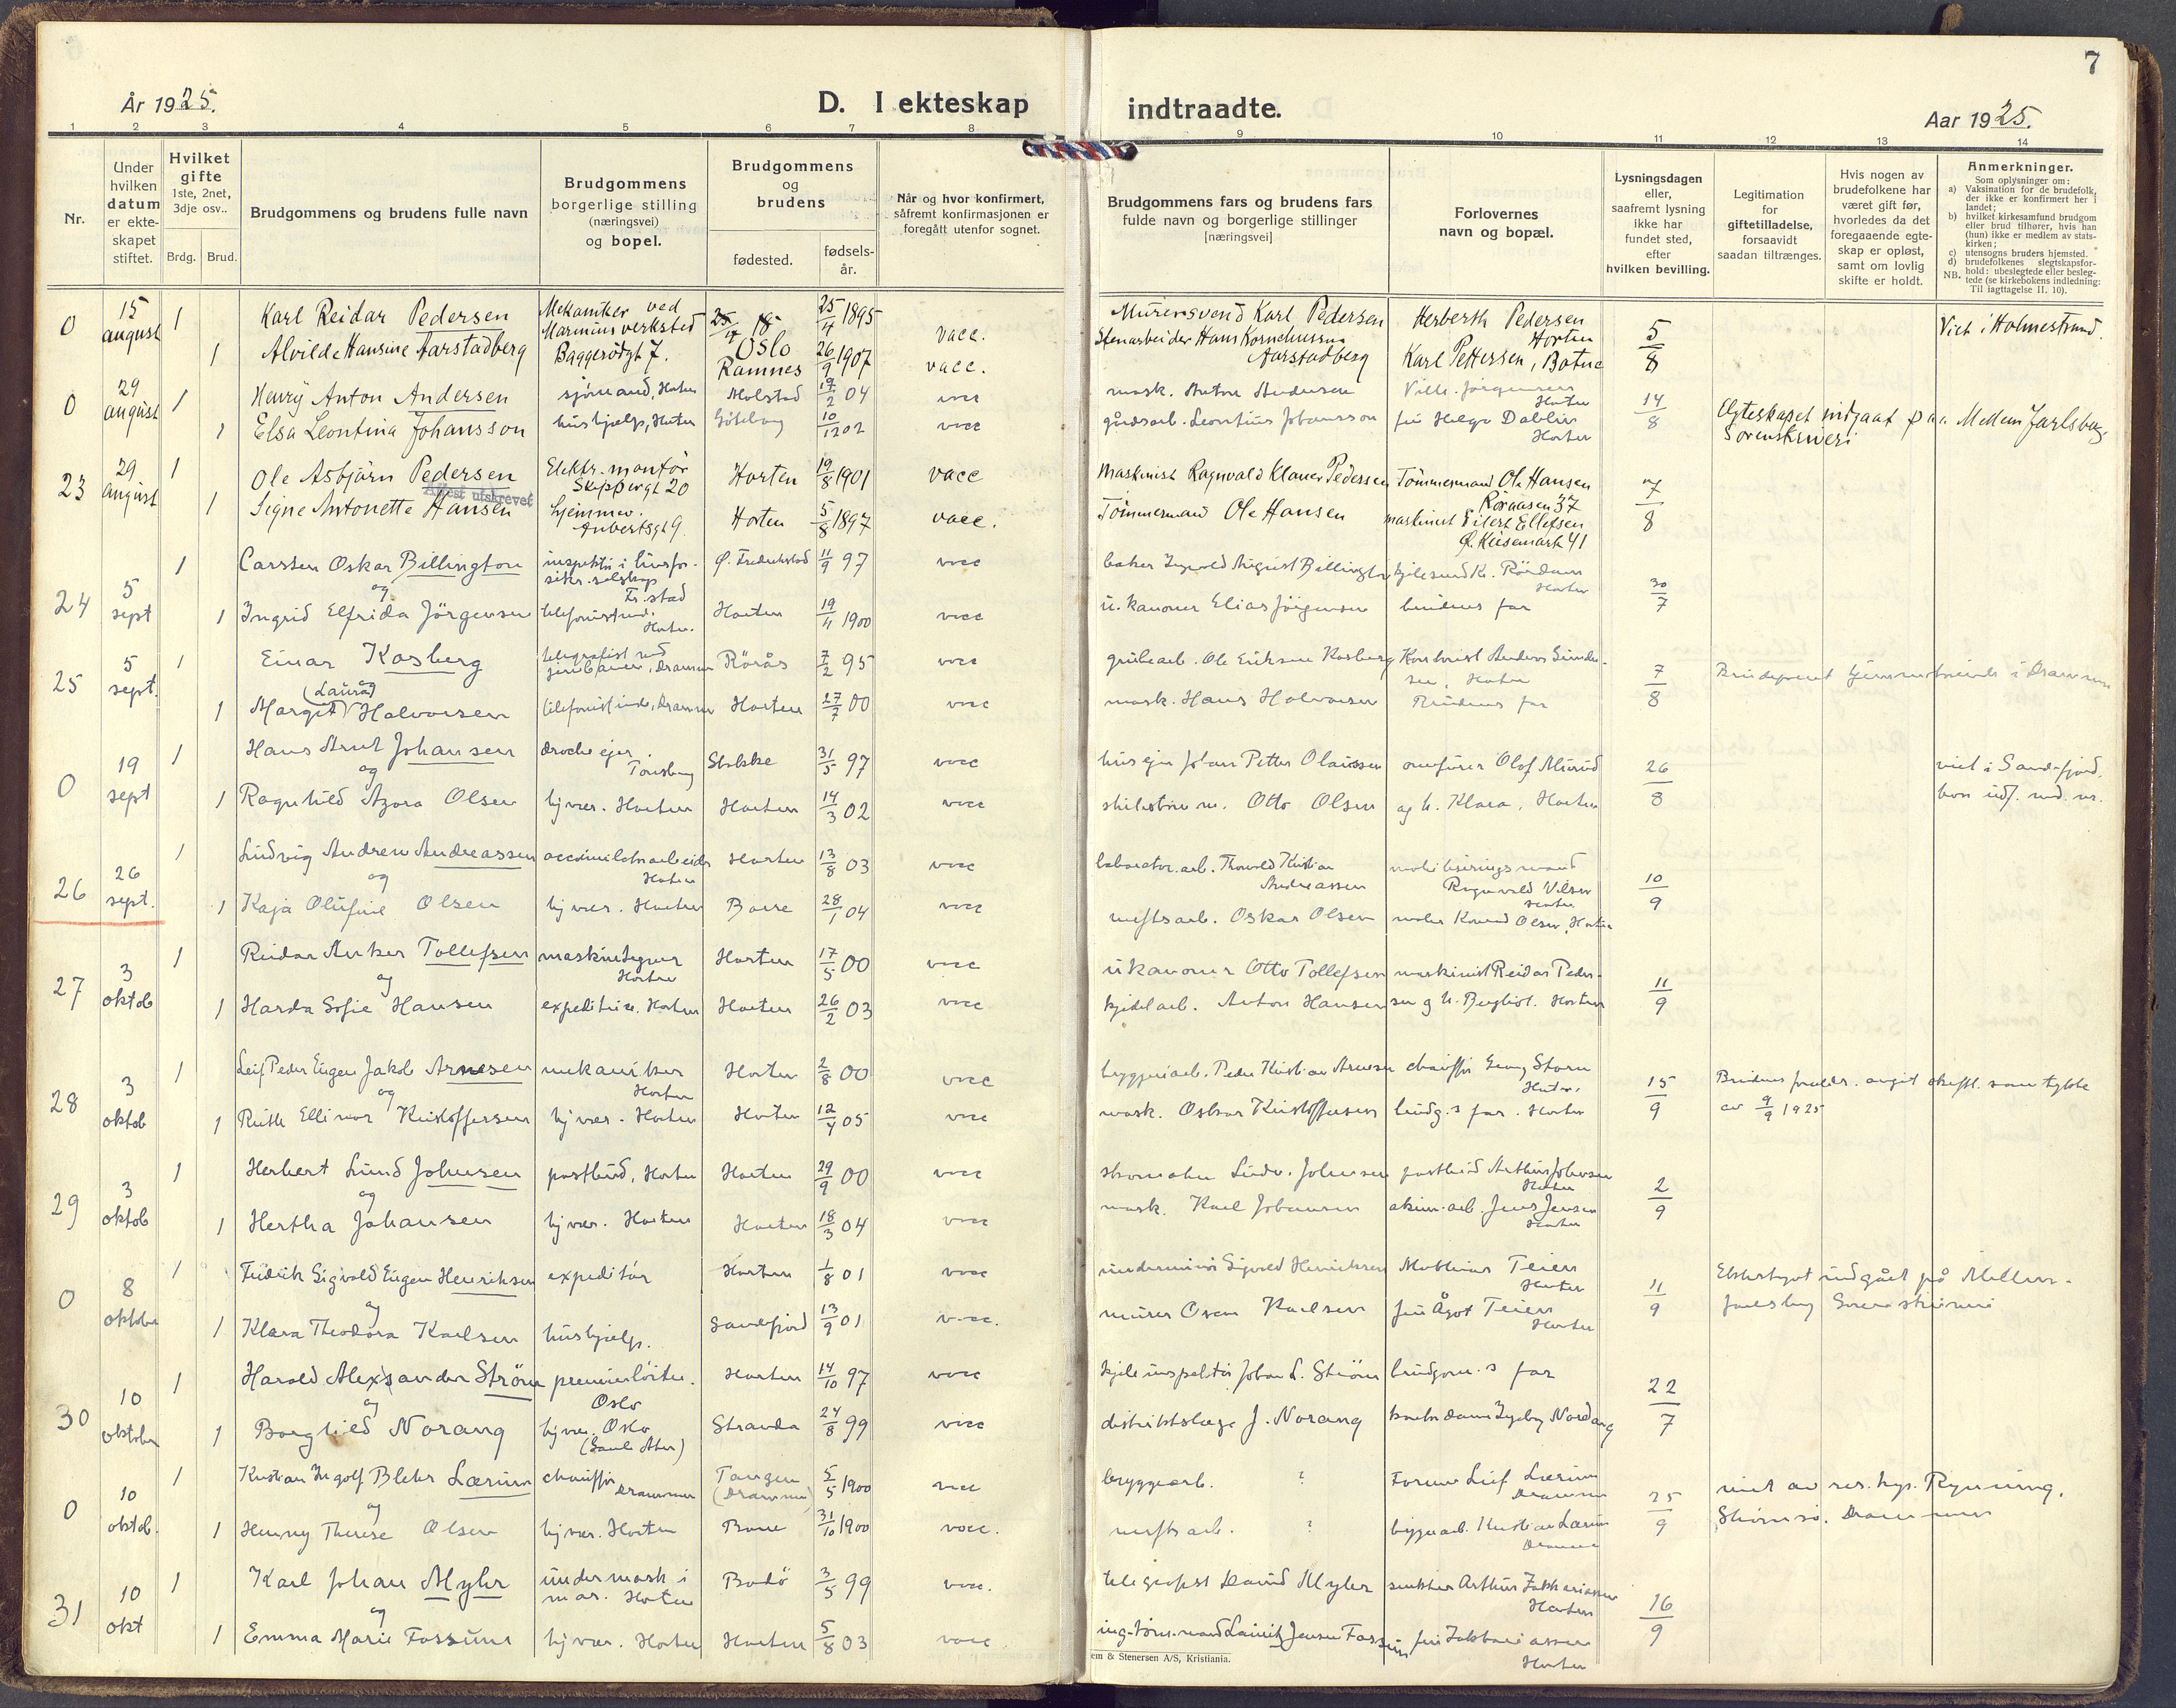 7
År 1925.
D. I ekteskap indtraadte.
Aar 1925.
1 2 3 4 5 6 7 8 9 10 11 12 13 14
Nr.
Under hvilken datum er ekte-skapet stiftet.
Hvilket gifte 1ste, 2net, 3dje osv..
Brdg. Brud.
Brudgommens og brudens fulle navn
Brudgommens borgerlige stilling (næringsvei) og bopel.
Brudgommens og brudens
fødested.
fødsels-år.
Når og hvor konfirmert, såfremt konfirmasjonen er foregått utenfor sognet.
Brudgommens fars og brudens fars fulde navn og borgerlige stillinger [næringsvei]
Forlovernes navn og bopæl.
Lysningsdagen eller, saafremt lysning ikke har fundet sted, efter hvilken bevilling.
Legitimation for giftetilladelse, forsaavidt saadan tiltrænges.
Hvis nogen av brudefolkene har været gift før, hvorledes da det foregaaende egte-skap er opløst, samt om lovlig skifte er holdt.
Anmerkninger.
Som oplysninger om:
a) Vaksination for de brudefolk, der ikke er konfirmert her i landet;
b) hvilket kirkesamfund brudgom eller brud tilhører, hvis han (hun) ikke er medlem av stats-kirken;
c) utensogns bruders hjemsted.
d) brudefolkenes slegtskapsfor-hold: ubeslegtede eller besleg-tede (se kirkebokens indledning: Til iagttagelse II. 10).
NB.
0 15 august 1 Karl Reidar Pedersen Mekaniker ved Marinens verksted 25/4 1895 vacc. Murersvend Karl Pedersen Herberth Pedersen Horten 5/8 Viet i Holmestrand.
1 Alvilde Hansine Aarstadberg Baggerødgt 7. Oslo Ramnes 26/9 1907 vacc. Stenarbeider Hans Kornelius Aarstadberg Karl Pettersen,
0 29 august 1 Henry Anton Andersen sjømand, Horten 19/2 04 vacc mask. Anton Andersen Jørgensen Horten 14/8 Ægteskapet indgaat paa Mellem Jarlsberg Sorenskriveri
1 Elsa Leontina Johansson hushjelp, Horten Göteborg 10/12 02 vacc gårdsarb. Leontius Johansson fru Helga Dahlin Horten
23 29 august 1 Ole Asbjörn Pedersen Elektr. montör Skippergt 20 Horten 19/8 1901 vacc Maskinist Ragnvald Klaver Pedersen Tömmermand Ole Hansen Röraasen 37 7/8
Attest utskrevet
1 Signe Antonette Hansen hjemmev. Horten 5/8 1897 vacc. Tömmermand Ole Hansen maskinist Eilert Ellefsen Ø. Keisemark 41
24 5 sept 1 Carsten Oskar Billington Fr.stad Ø. Fredrikstad 11/9 97 vacc baker Ingvald August Billington Horten 30/7
og
1 Ingrid Elfrida Jörgensen telefonistinde. Horten Horten 19/11 1900 vacc u. kanoner Elias Jörgensen brudens far
25 5 sept. 1 Einar Kosberg telegrafist ved jernbanen, Drammen Rörås 7/2 95 vacc grubearb. Ole Eriksen Kosberg Anders Gunder-sen, Horten 7/8
og
1 Margit (Laura) Halvorsen telefonistinde, Drammen Horten 27/7 00 vacc mask. Hans Halvorsen Brudens far
0 19 sept 1 Hans Arnt Johansen droscheejer Tønsberg Stokke 31/5 97 vacc husejer Johan Petter Olaussen Olof 26/8 viet i Sandefjord.
og
1 Ragnhild Azora Olsen hj vær. Horten Horten 14/3 02 vacc Otto Olsen og h. Klara, Horten
26 26 sept. 1 Ludvig Andreas Andreassen Horten Horten 13/8 03 vacc laborator.arb. Thorvald Kristian Andreassen Ragnvald Nilsen Horten 10/9
og
1 Kaja Olufine Olsen hj vær. Horten Borre 28/1 04 vacc verftsarb. Oskar Olsen maler Konrad Olsen, Horten
27 3 oktob 1 Reidar Anker Tollefsen maskintegner Horten Horten 17/5 00 vacc u kanoner Otto Tollefsen maskinist Reidar Peder- 11/9
og
1 Harda Sofie Hansen expeditrice. Horten Horten 26/2 03 vacc kjedelarb. Anton Hansen sen og h. Bergliot. Horten
28 3 oktob 1 Leif Peder Eugen Jakob Arnesen mekaniker Horten Horten 2/8 00 vacc bryggeriarb. Peder Kristian Arnesen chauffør Georg Storm Horten 15/9
og
1 Ruth Ellinor Kristoffersen hj vær. Horten Horten 12/4 05 vacc mask. Oskar Kristoffersen brudg.s far. Horten av 9/9 1925
29 3 oktob 1 Herbert Lund Johnsen postbud, Horten Horten 29/9 00 vacc Johnsen postbud Arthur Johnsen Horten 2/9
og
1 Hertha Johansen hj vær. Horten Horten 18/3 04 vacc mask. Karl Johansen Jens Jensen Horten
0 8 oktober 1 Fredrik Sigvald Eugen Henriksen expeditör Horten 1/8 01 vacc Sigvald Henriksen Mathias Teien Horten 11/9 Ekteskapet indgået på Mellem-Jarlsberg Sorenskriveri
og
1 Klara Theodora Karlsen hushjelp. Sandefjord 13/9 01 vacc. murer Oscar Karlsen fru Ågot Teien Horten
30 10 oktober 1 Harald Alexsander Ström premierlöitn. Oslo Horten 14/10 97 vacc kjeleinspektör Johan L. Ström brudgom.s far 22/7
og
1 Borghild Norang hj vær. Oslo (Gamle Aker) Stranda 24/8 99 vacc distriktslæge J. Norang Nordang
0 10 oktob. 1 Kristian Ingolf Blehr Lærum chauffør Drammen Tangen (Drammen) 5/5 1900 vacc bryggearb. ? Leif Lærum Drammen 25/9 viet av res. kap. Rynning, Strömsö. Drammen
og
1 Henny Therese Olsen hj vær. Horten Borre 31/10 1900 vacc. verftsarb. ? Kristian Lærum Drammen
31 10 okt 1 Karl Johan Myhr undermask i mar. Horten Bodö 3/5 99 vacc. telegrafist Myhr Arthur Zakkariassen Horten 16/9
og
1 Emma Marie Fossum hj vær. Horten Horten 5/8 03 vacc Jensen Fossum fru Zakkariassen Horten
em & Stenersen A/S, Kristiania.